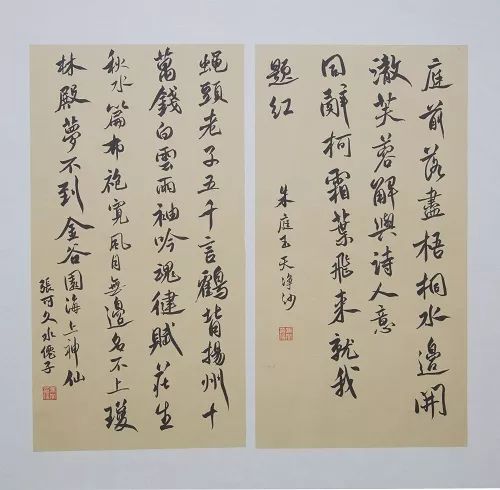 庭前落盡梧桐水邊開
澈芙蓉解與詩人意
同辭柯霜葉飛来就我
題紅
朱庭玉天净沙
蝇頭老子五千言鶴背揚州十
萬錢白雲兩袖吟魂健賦莊生
秋水篇布袍寬風月無邊名不上瓊
林殿夢不到金谷園海上神仙
張可久水僊子